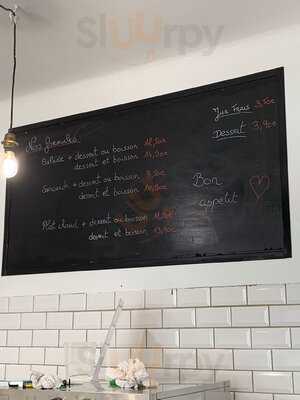 Sluurpy
Nos Formules
Salade + dessert ou boisson 12,50€
dessert et boisson 14,50€
Sandwich + dessert ou boisson
dessert et boisson
Plat chaud + dessert ou boisson
dessert et boisson 13,90€
Jus Frais 3,50€
Dessert 3,90€
Bon
appétit